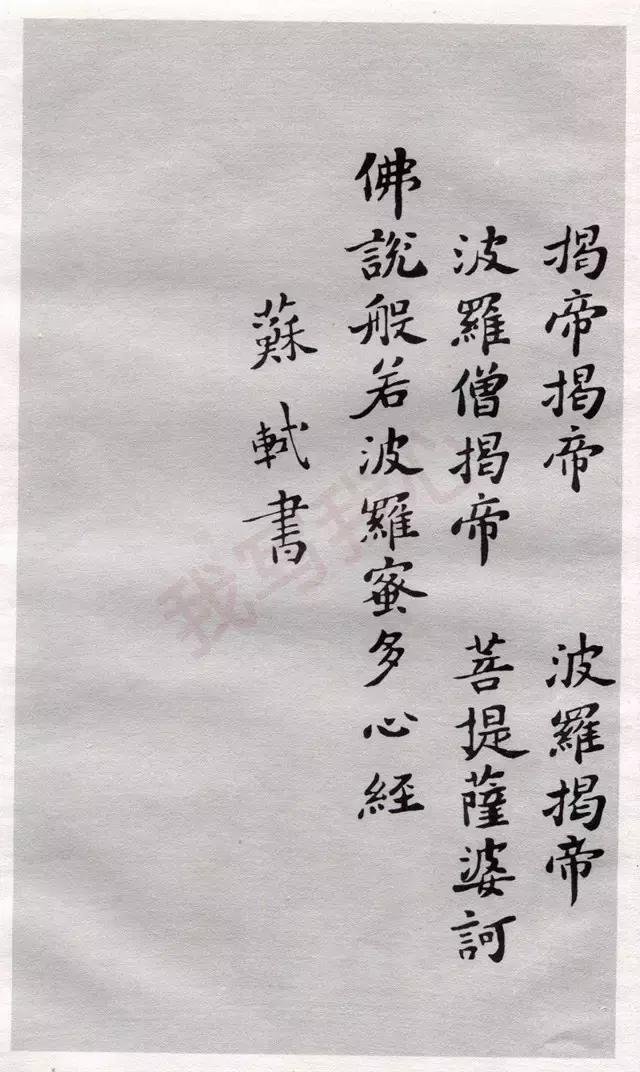 揭帝揭帝 波羅揭帝
波羅僧揭帝 菩提薩婆訶
佛說般若波羅蜜多心経
蘇軾書
我写我心